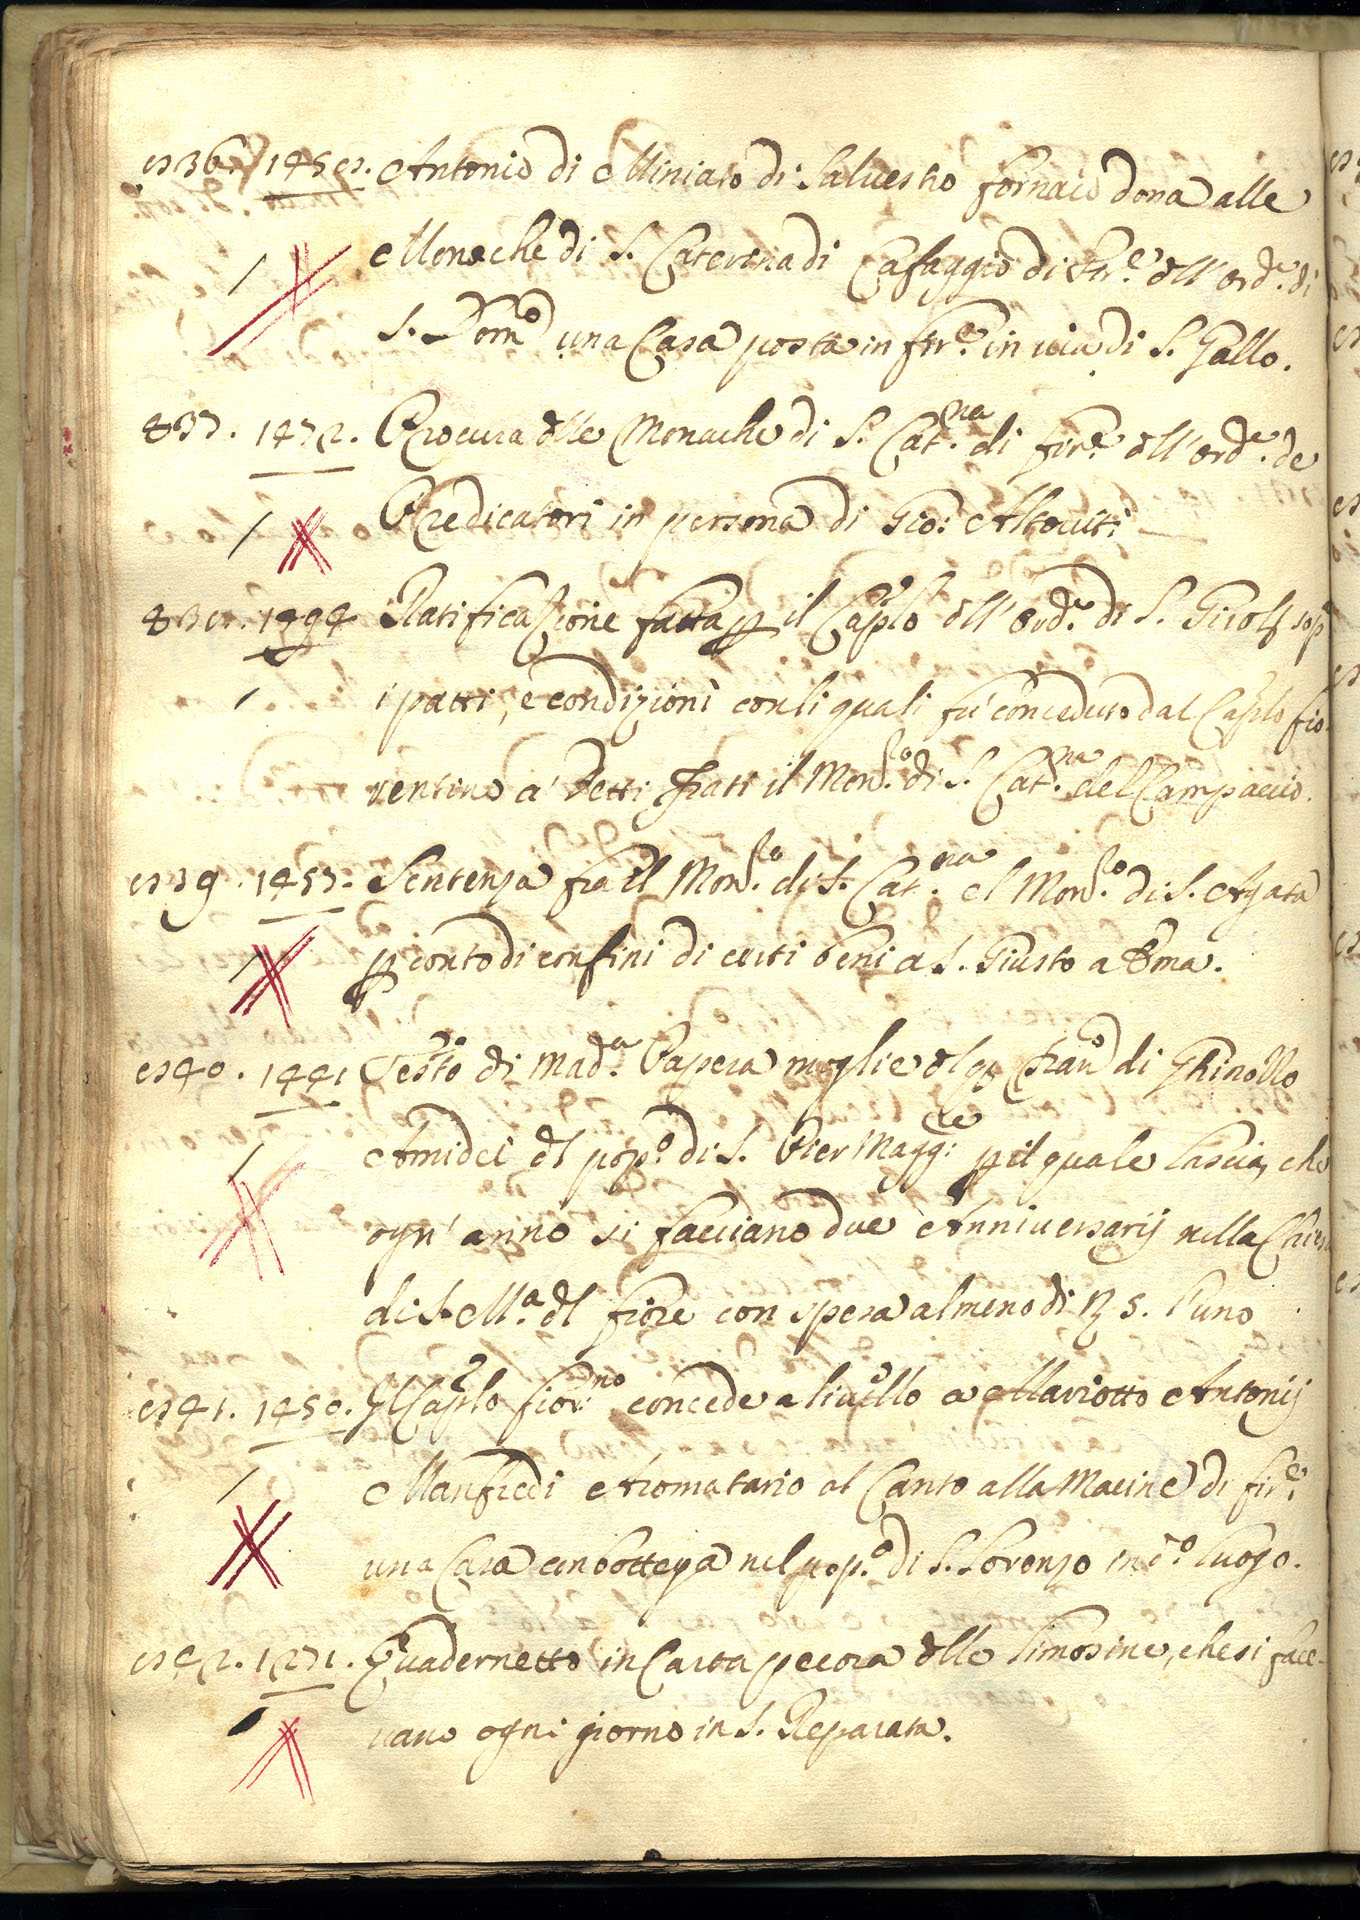 836. 1458. Antonio di Miniato di Saluestro fornaio dona alle
Monache di S. Caterina di Cafaggio di Fir.e dll' Ord.e di
S. Dom.o una Casa posta in fir.e in uia di S. Gallo.
837. 1472. Procura dlle Monache di S. Cat.na di fir.e dll' ord.e de
Predicatori in persona di Gio: Altouiti
838. 1494 Ratificazione fatta p il Caplo dll' Ord.e di S. Girol.
i patti, e condizioni con li quali fu conceduto dal Caplo fio-
rentino a' detti frati il Mon.ro di S. Cat.na del Campaccio.
839. 1457. Sentenza fra il Mon.ro di S. Cat.na el Mon.ro di S. Agata
p conto di confini di certi beni a S. Giusto a Ema.
840. 1441 Testo di Mad.a Papera moglie dl q Fran.o di Ghinollo
Amidei dl pop.o di S. Pier Magg.re p il quale lascia, che
ogn' anno si facciano due Anniuersarij nella Chiesa
di S. M.a dl fiore con spesa almeno di 5. l'uno
841. 1450. Il Caplo fior.no concede a liuello a Mariotto Antonij
Manfredi Aromatario al Canto alla Macine di fir.e
una Casa con bottega nel pop.o di S. Lorenzo in d.o luogo.
842. 1271. Quadernetto in Carta pecora dlle limosine, che si face-
uano ogni giorno in S. Reparata.